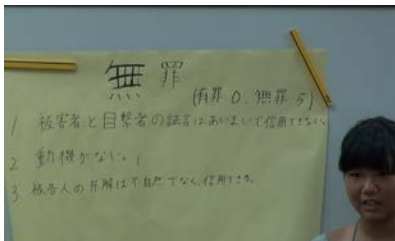 無罪
(有罪0、無罪5)
1 被害者と目撃者の証言はあいまいで信用できない。
2 動機がない。
3 被告人の弁解は不自然でなく、信用できる。